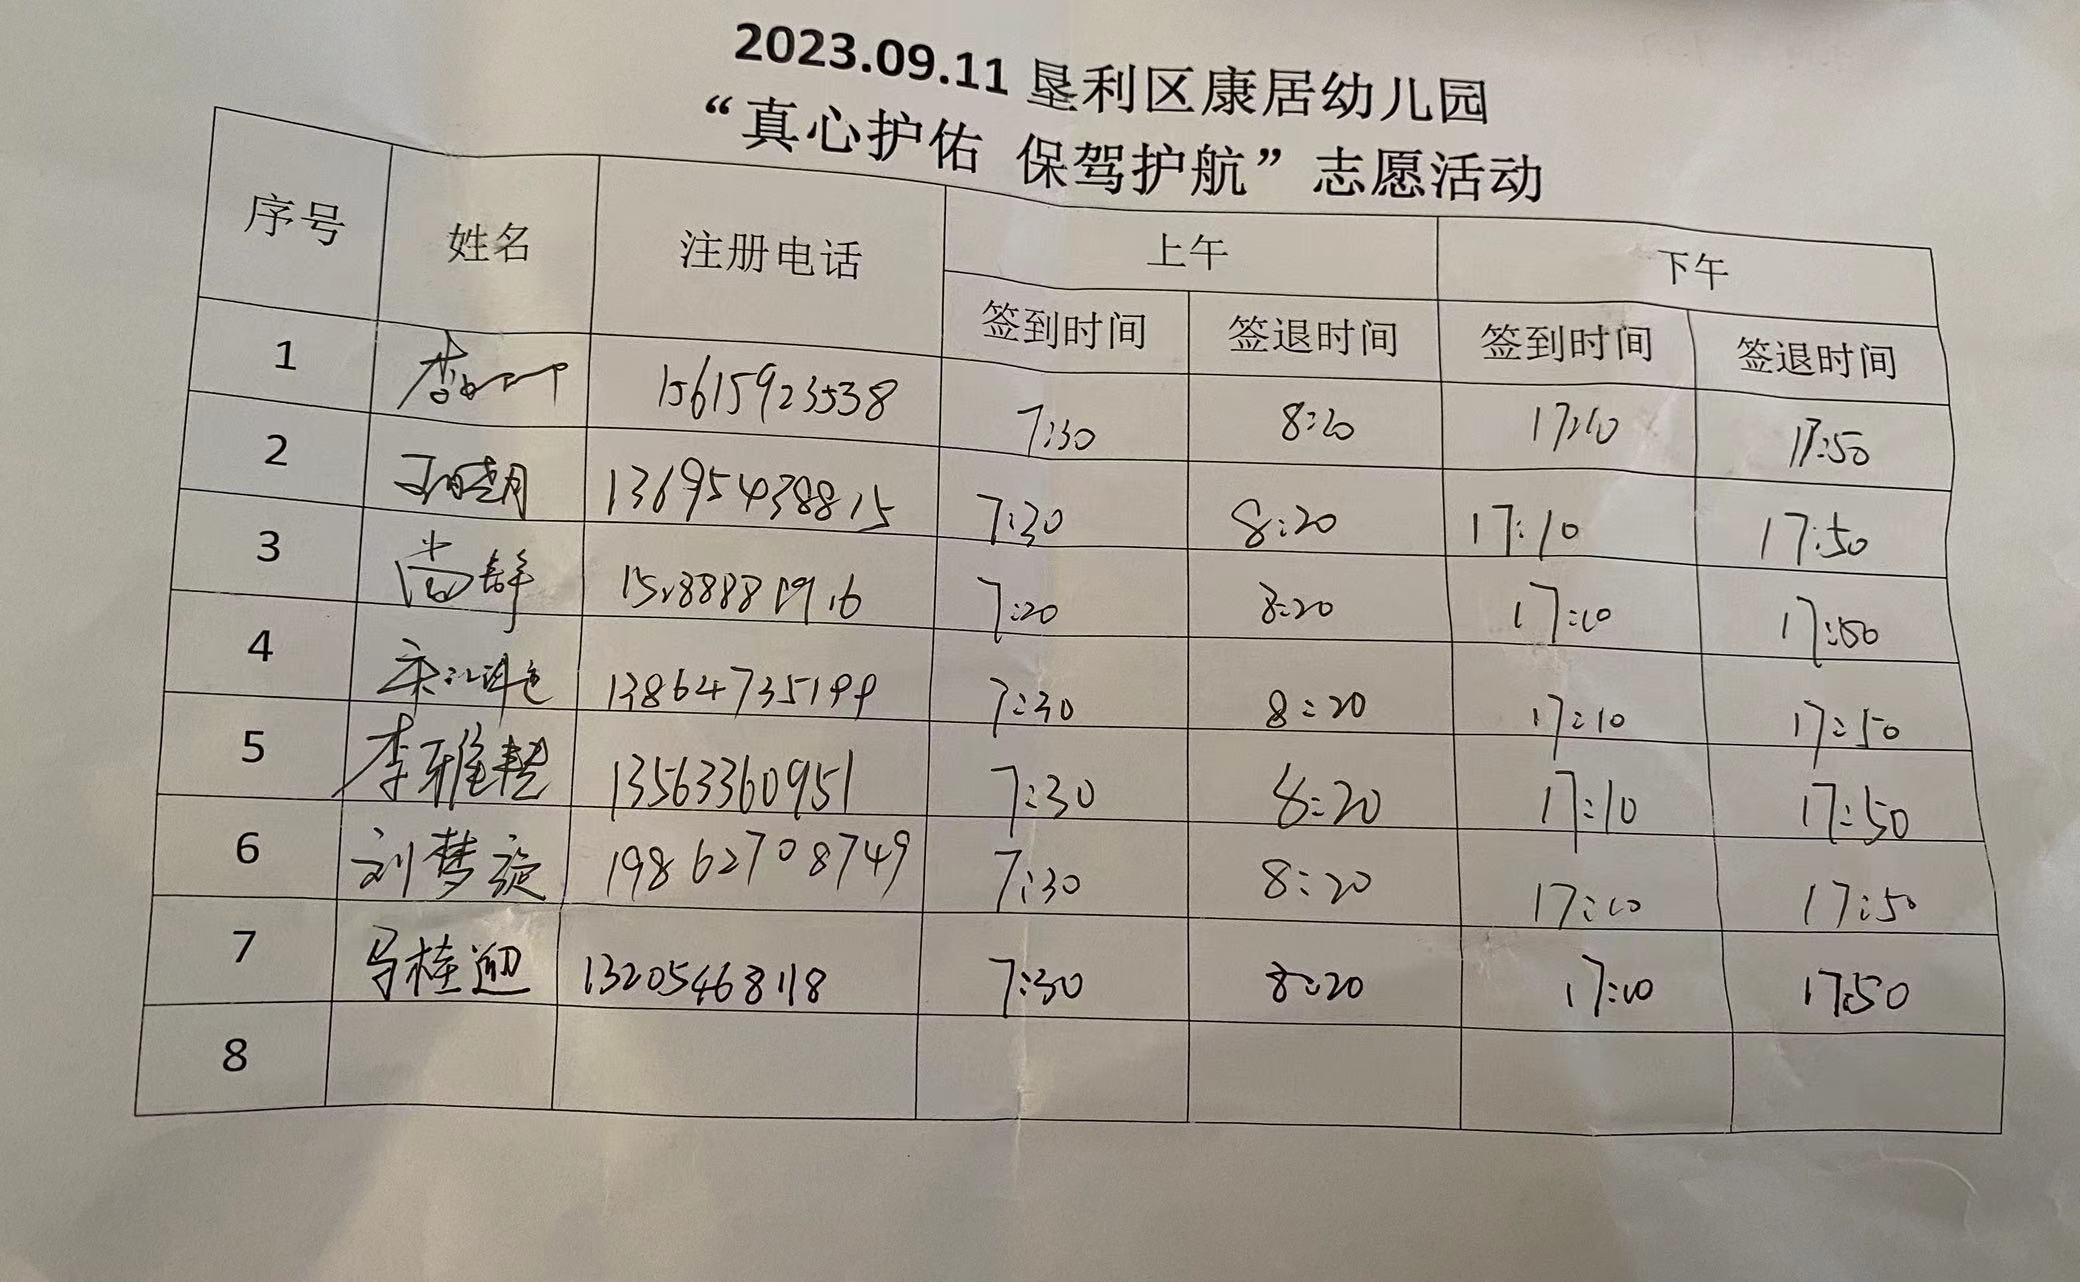 2023.09.11 垦利区康居幼儿园
“真心护佑 保驾护航”志愿活动
序号 姓名 注册电话 上午 下午
签到时间 签退时间 签到时间 签退时间
1 李 15615923538 7:30 8:20 17:10 17:50
2 13695438815 7:30 8:20 17:10 17:50
3 尚静 7:20 8:20 17:10 17:50
4 13864735199 7:30 8:20 17:10 17:50
5 李雅 13563360951 7:30 8:20 17:10 17:50
6 刘梦旋 19862708749 7:30 8:20 17:10 17:50
7 马桂迎 13205468118 7:30 8:20 17:10 17:50
8